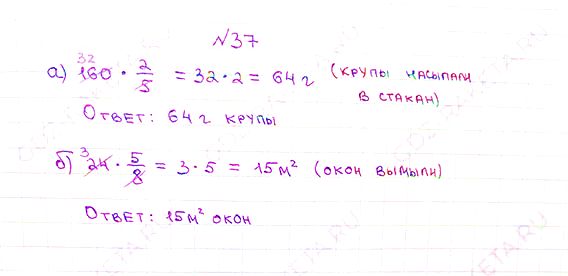 №37
а) 160 · 2/5 = 32 · 2 = 64 г (крупы насыпали
32
в стакан)
Ответ: 64 г крупы
б) 24 · 5/8 = 3 · 5 = 15 м² (окон вымыли)
3
Ответ: 15 м² окон